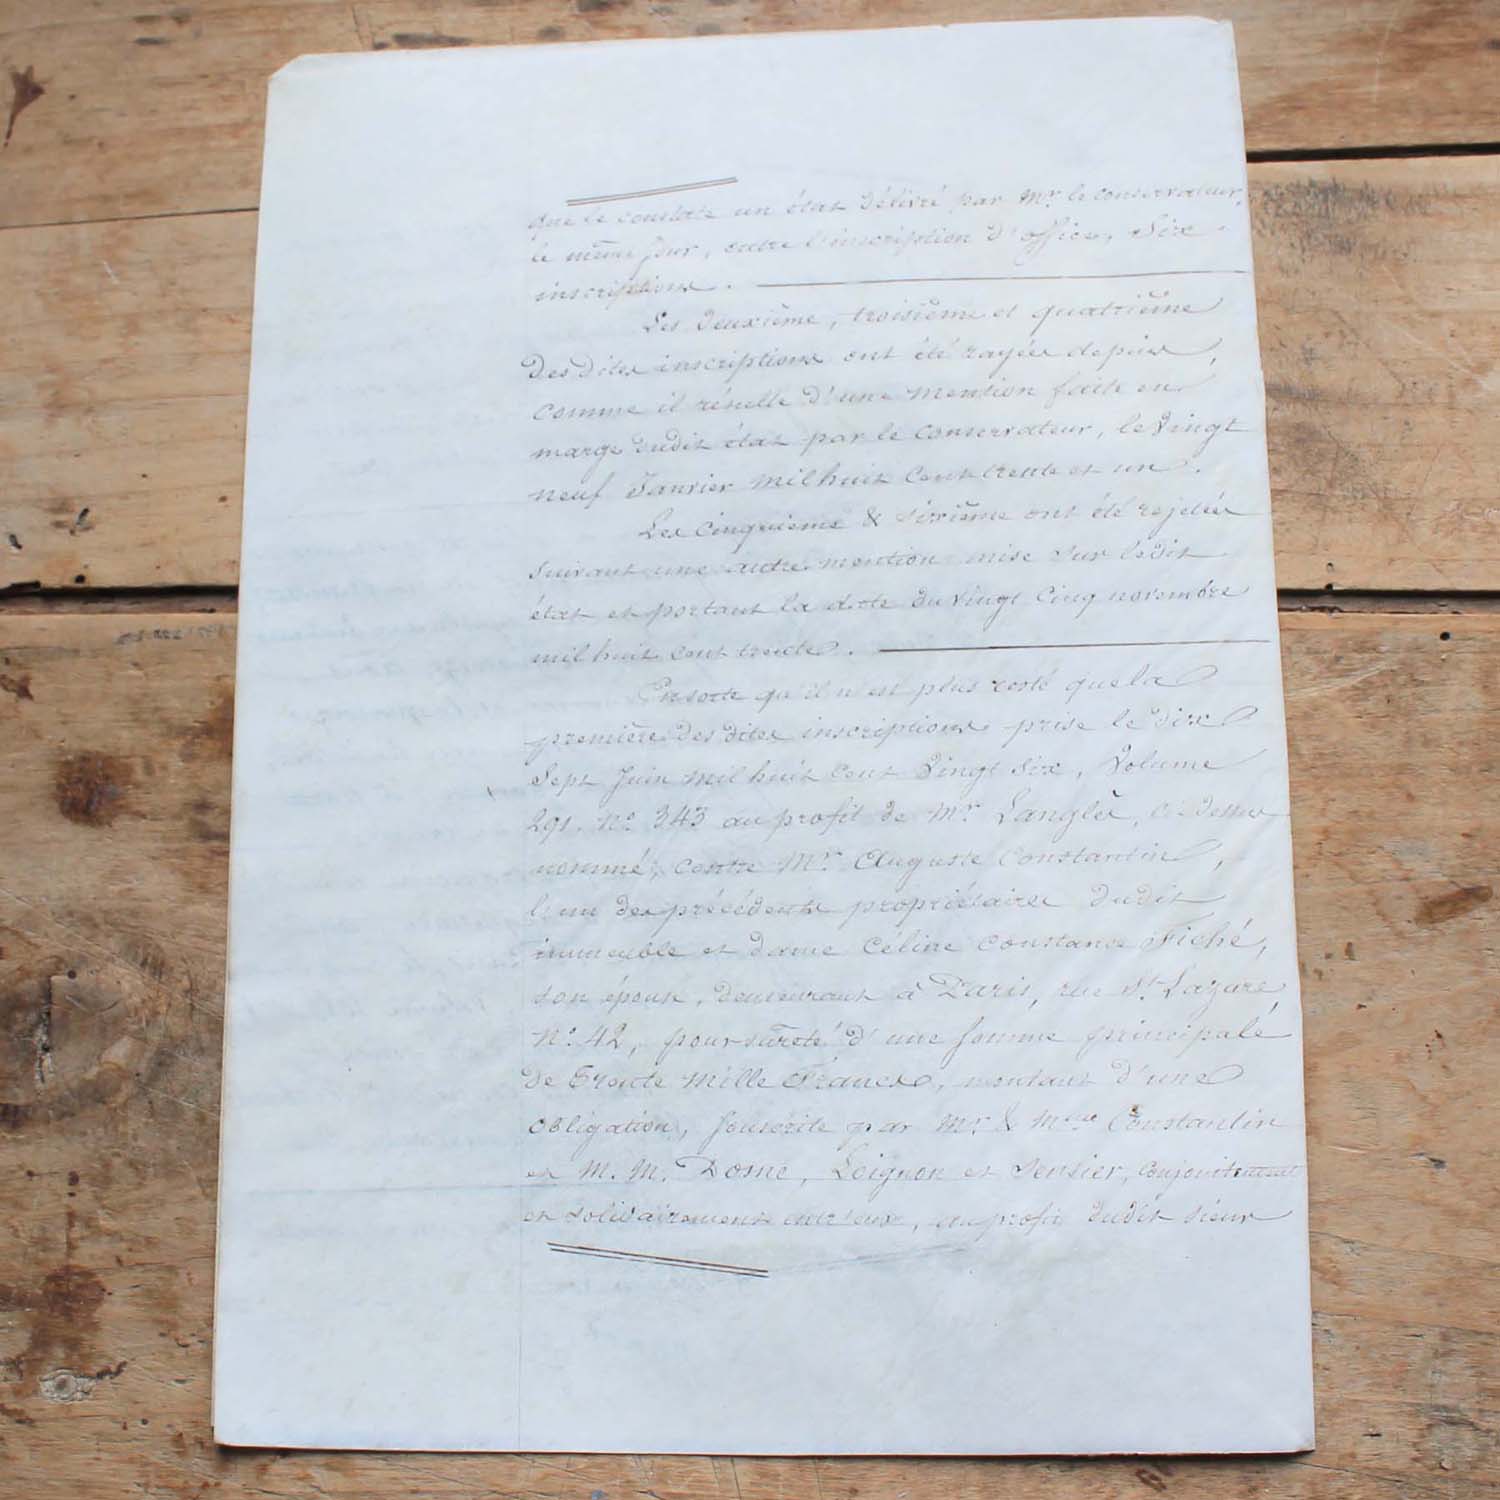 que le constate un état délivré par Mr. le conservateur,
le même jour, outre l'inscription d'office, Six
inscriptions.
Les deuxième, troisième et quatrième
des dites inscriptions ont été rayées depuis,
comme il résulte d'une mention faite en
marge dudit état par le conservateur, le vingt
neuf Janvier mil huit cent trente et un.
Les cinquième & sixième ont été rejetées
suivant une autre mention mise sur ledit
état et portant la date du vingt cinq novembre
mil huit cent trente.
Ensorte qu'il n'est plus resté que la
première des dites inscriptions prise le dix
Sept Juin mil huit cent vingt six, Volume
291. No. 343 au profit de Mr. Langlès, ci-dessus
nommé, contre Mr. Auguste Constantin,
l'un des précédents propriétaires dudit
immeuble et dame Céline Constance Fiché,
son épouse, demeurant à Paris, rue St. Lazare
No. 42, pour sûreté d'une somme principale
de Trente mille Francs, montant d'une
obligation, souscrite par Mr. & Mme Constantin
et M. M. Dome, Loignon et Sensier, conjointement
et solidairement entr'eux, au profit dudit sieur